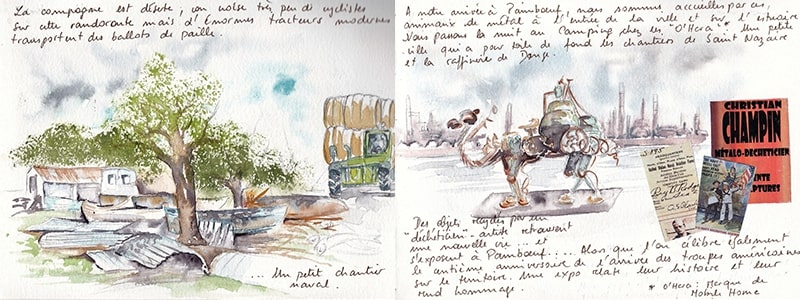 La campagne est déserte, on croise très peu de cyclistes
sur cette randonnée mais d'énormes tracteurs modernes
transportent des ballots de paille.
... Un petit chantier
naval.
A notre arrivée à Paimboeuf, nous sommes accueillis par ces
animaux de métal à l'entrée de la ville et sur l'estuaire
Nous passons la nuit au Camping chez les "O'Hera"*. Une petite
ville qui a pour toile de fond les chantiers de Saint Nazaire
et la raffinerie de Donge.
CHRISTIAN
CHAMPIN
MÉTALO-DECHETICIEN
Des objets recyclés par un
"décheticien"-artiste retrouvent
une nouvelle vie ... et
s'exposent à Paimboeuf.... Alors que l'on célèbre également
le centième anniversaire de l'arrivée des troupes américaines
sur le territoire. Une expo relate leur histoire et leur
rend hommage.
* O'Hera: Marque de
Mobiles Home